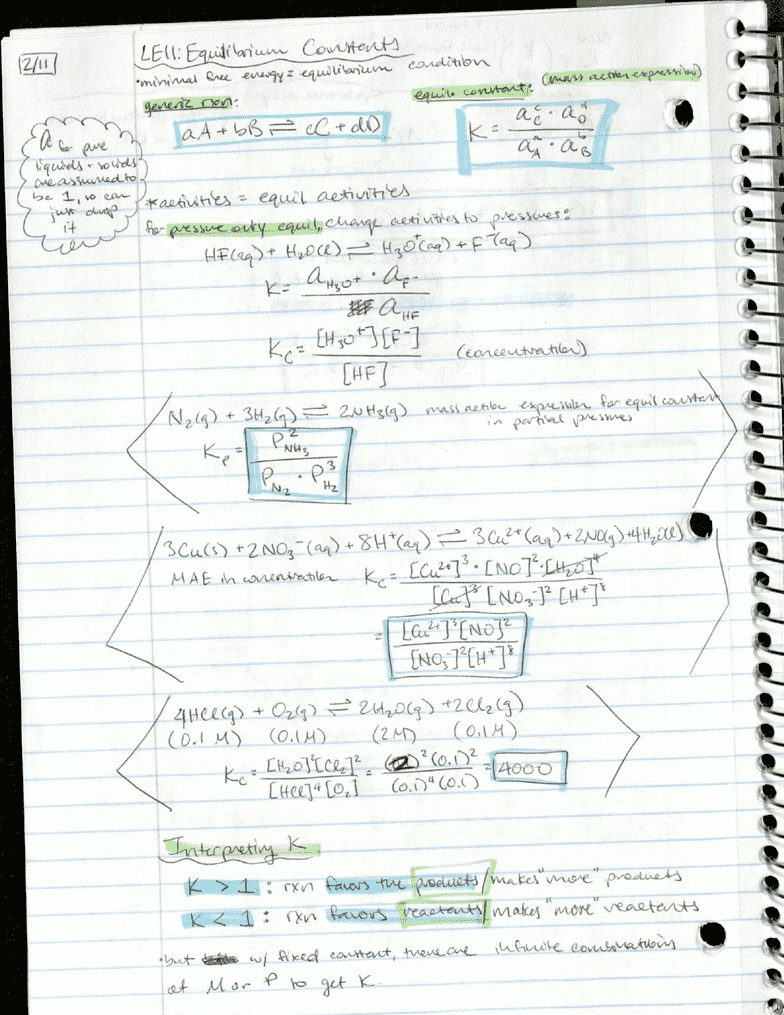 2/11
LE11: Equilibrium Constants
•minimal free energy = equilibrium condition
generic rxn:
equilib constant: (mass action expression)
aA + bB ⇌ cC + dD
K = a_C^c · a_D^d / a_A^a · a_B^b
a for pure
liquids + solids
are assumed to
be 1, so can
just drop
it
*activities = equil activities
for pressure only equil, change activities to pressures:
HF(aq) + H₂O(l) ⇌ H₃O⁺(aq) + F⁻(aq)
K = a_H₃O⁺ · a_F⁻ / a_HF
K_C = [H₃O⁺][F⁻] / [HF] (concentration)
N₂(g) + 3H₂(g) ⇌ 2NH₃(g) mass action expression for equil constant
in partial pressures
K_P = P_NH₃² / P_N₂ · P_H₂³
3Cu(s) + 2NO₃⁻(aq) + 8H⁺(aq) ⇌ 3Cu²⁺(aq) + 2NO(g) + 4H₂O(l)
MAE in concentration K_C = [Cu²⁺]³ · [NO]² · [H₂O]⁴ / [Cu]³ [NO₃⁻]² [H⁺]⁸
= [Cu²⁺]³[NO]² / [NO₃⁻]²[H⁺]⁸
4HCl(g) + O₂(g) ⇌ 2H₂O(g) + 2Cl₂(g)
(0.1 M) (0.1M) (2M) (0.1M)
K_C = [H₂O]²[Cl₂]² / [HCl]⁴[O₂] = (2)²(0.1)² / (0.1)⁴(0.1) = 4000
Interpreting K
K > 1 : rxn favors the products/makes "more" products
K < 1 : rxn favors reactants/makes "more" reactants
•but w/ fixed constant, there are infinite combinations
of M or P to get K.